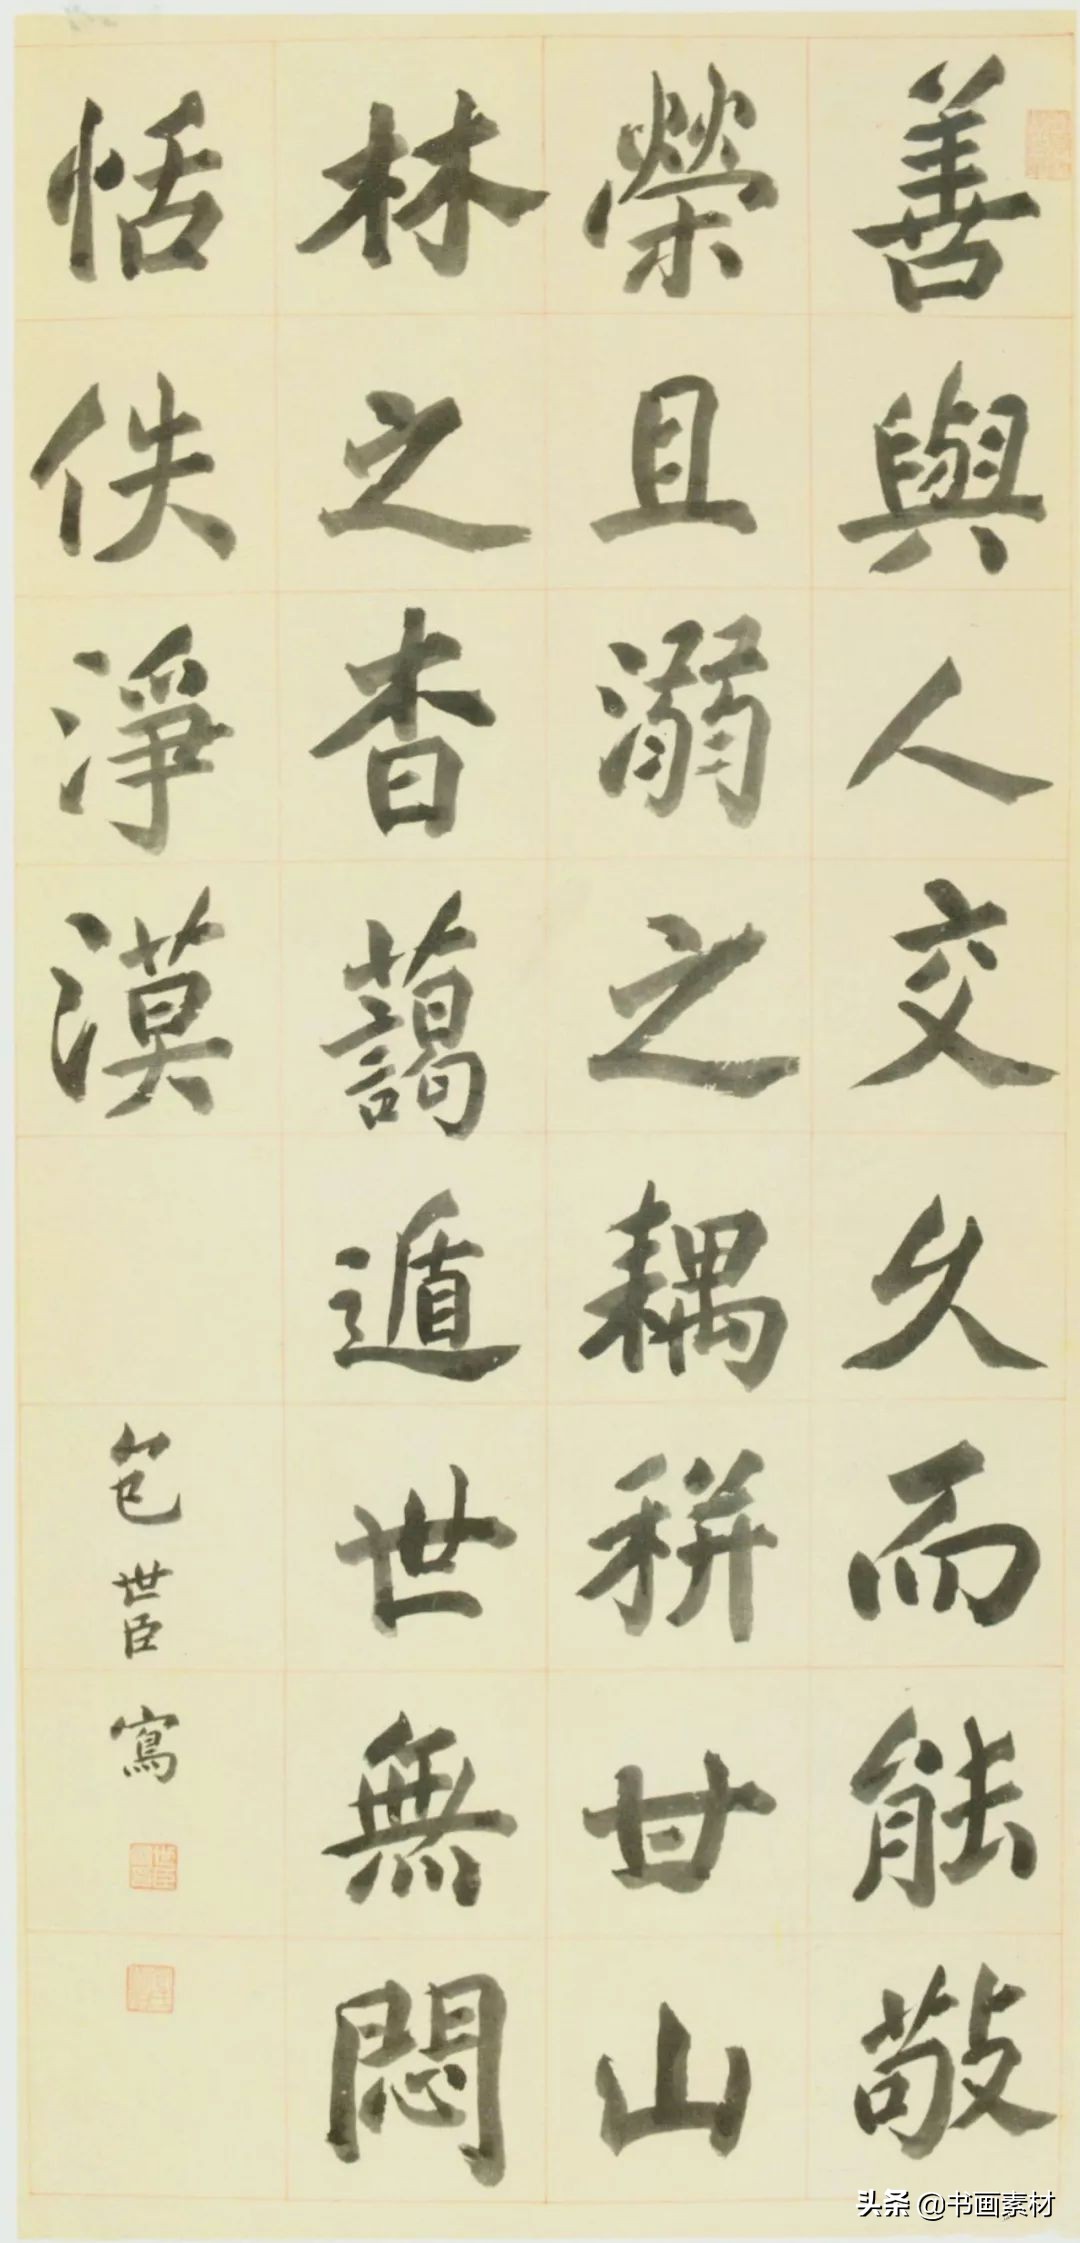 善與人交久而能敬
榮且溺之耦耕甘山
林之杳藹遁世無悶
恬佚淨漠
包世臣寫
头条 @书画素材